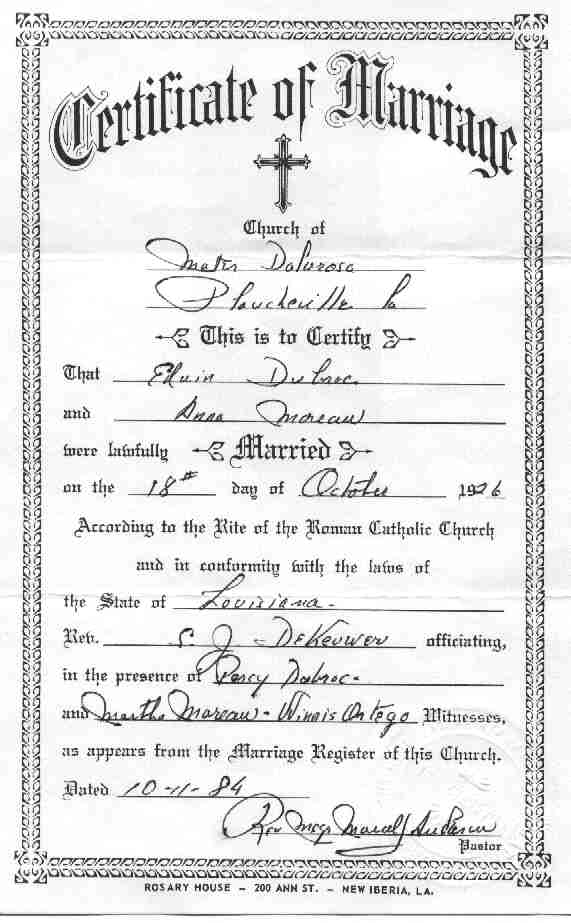 Certificate of Marriage
Church of
Mater Dolorosa
Plaucheville La
This is to Certify
That Elvin Dubroc
and Anna Moreau
were lawfully Married
on the 18th day of October 1926
According to the Rite of the Roman Catholic Church
and in conformity with the laws of
the State of Louisiana.
Rev. S. J. DeKeuwer officiating,
in the presence of Percy Dubroc.
and Martha Moreau - Winnis Ortego Witnesses,
as appears from the Marriage Register of this Church.
Dated 10-11-84
Rev Msgr Marcel J Anderson
Pastor
ROSARY HOUSE – 200 ANN ST. – NEW IBERIA, LA.